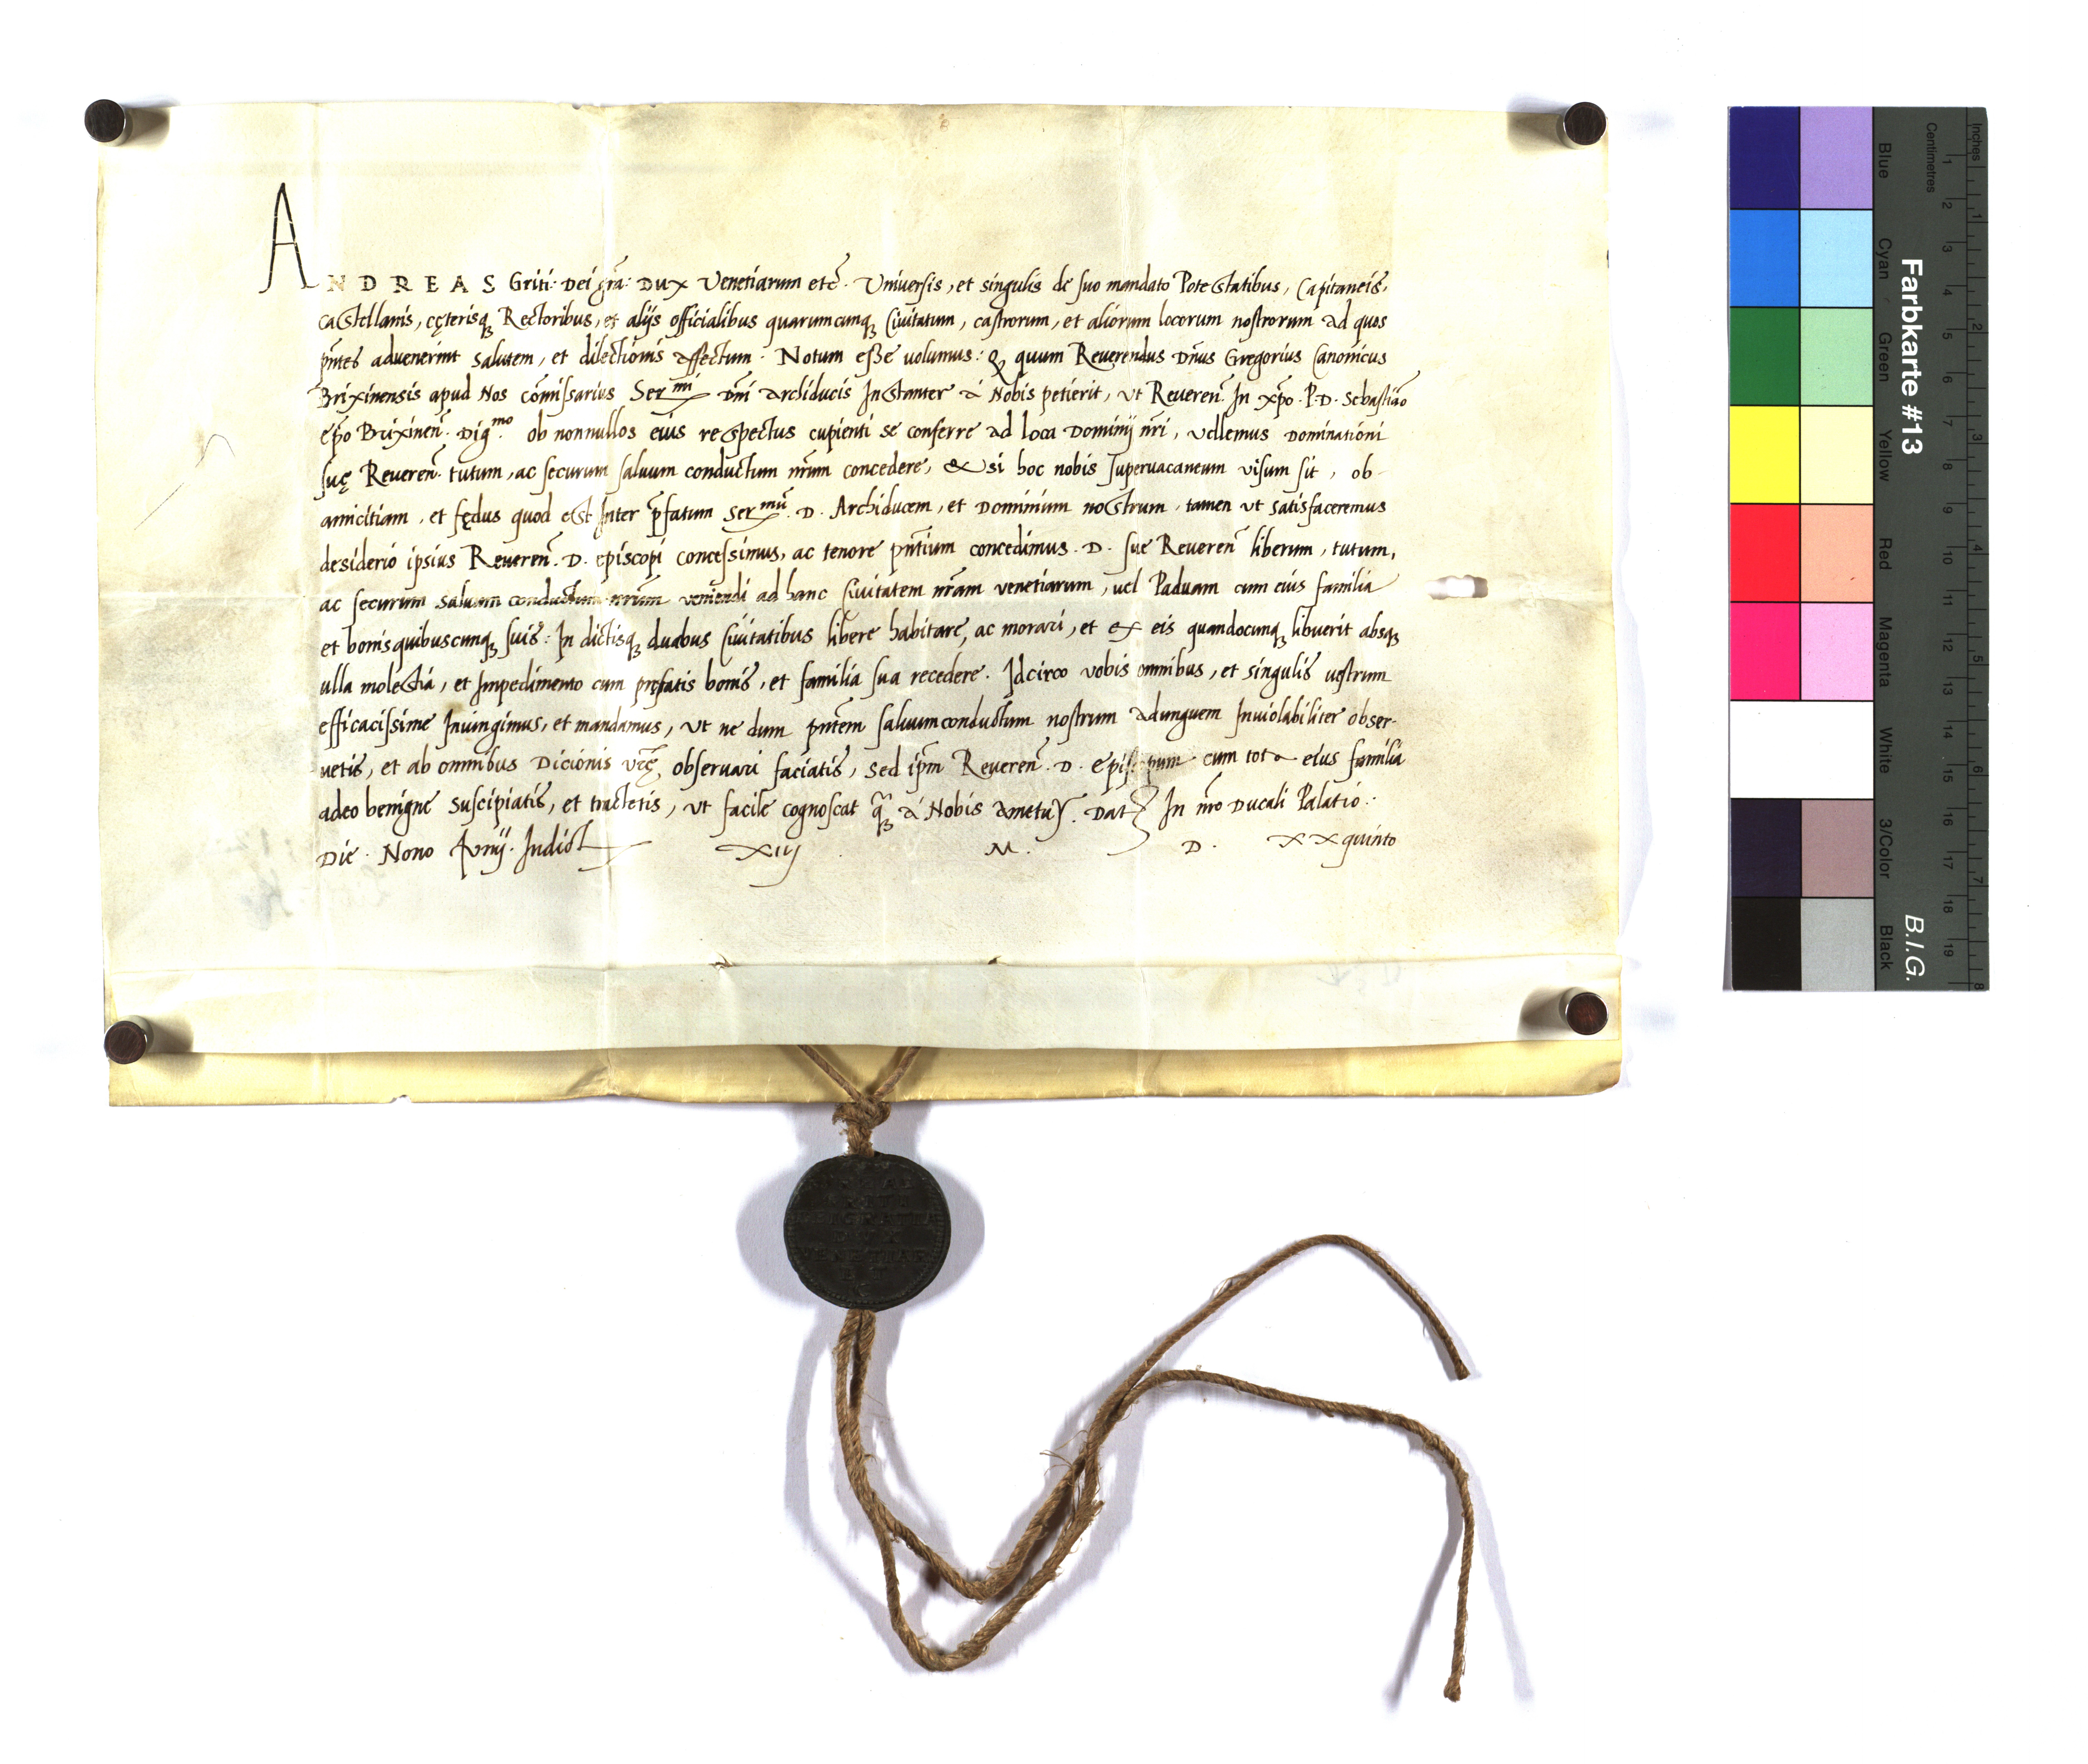 ANDREAS Griti: Dei gr̃a: Dux Venetiarum etc̃. Universis, et singulis de suo mandato Potestatibus, Capitaneis,
castellanis, cęterisq; Rectoribus, et alijs officialibus quarumcunq; Civitatum, castrorum, et aliorum locorum nostrorum ad quos
pñtes advenerint salutem, et dilectionis affectum. Notum esse volumus: Q quum Reverendus Dñus Gregorius Canonicus
Brixinensis apud Nos com̃issarius Ser.mi Dñi Archiducis Instanter à Nobis petierit, ut Reveren̄. In xp̃o. P. D. Sebastião
ep̃o Brixineñ. Dig.mo ob nonnullos eius respectus cupienti se conferre ad loca Dominij nr̃i, vellemus Dominationi
suę Reveren̄. tutum, ac securum salvum conductum nr̃um concedere, & si hoc nobis supervacaneum visum sit, ob
amicitiam, et fędus quod est Inter p̃fatum Ser.mũ. D. Archiducem, et Dominium nostrum, tamen ut satisfaceremus
desiderio ipsius Reveren̄. D. episcopi concessimus, ac tenore pñtium concedimus. D. sue Reveren̄ liberum, tutum,
ac securum salvum conductum nr̃um veniendi ad hanc Civitatem nr̃am venetiarum, vel Paduam cum eius familia
et bonis quibuscunq; suis: In dictisq; duabus Civitatibus libere habitare, ac morari, et ex eis quandocunq; libuerit absq;
ulla molestia, et Impedimento cum pręfatis bonis, et familia sua recedere. Idcirco vobis omnibus, et singulis vestrum
efficacissime Iniungimus, et mandamus, ut ne dum pñtem salvumconductum nostrum adunguem Inviolabiliter obser-
vetis, et ab omnibus Dicionis vr̃ę, observari faciatis, sed ip̃m Reveren̄. D. episcopum cum tota eius familia
adeo benigne suscipiatis, et tractetis, ut facile cognoscat à Nobis ametur. Dat In nr̃o Ducali Palatio.
Die. Nono Iunij. Indict XIIJ M. D. XXquinto
GRATIA
DVX
VENETIAR
ET
Farbkarte #13
B.I.G.
Inches 1 2 3 4 5 6 7 8
Centimetres 1 2 3 4 5 6 7 8 9 10 11 12 13 14 15 16 17 18 19
Blue Cyan Green Yellow Red Magenta White 3/Color Black